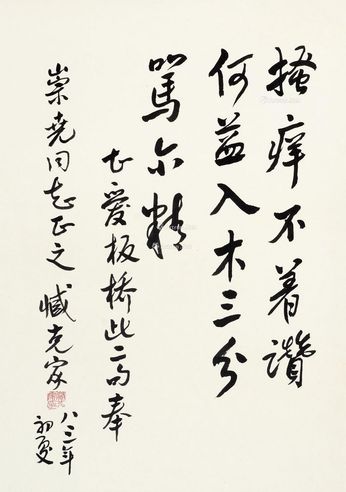 搔痒不着讚
何益入木三分
駡亦精
甚爱板桥此二句奉
崇尧同志正之 臧克家
八三年
初夏